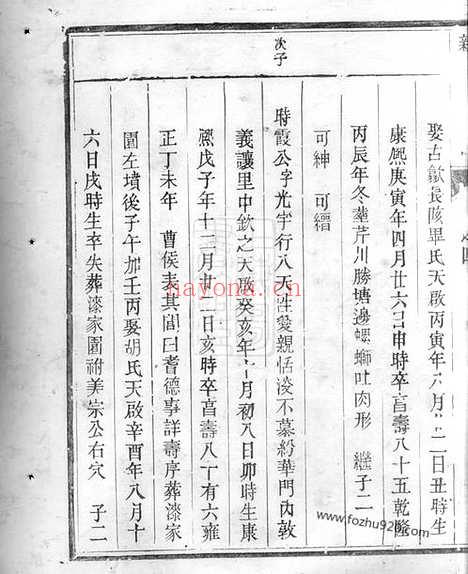 娶古歙長陔畢氏天啟丙寅年六月廿二日丑時生
康熙庚寅年四月廿六日申時卒享壽八十五乾隆
丙辰年冬塟芹川勝塘邊螺螄吐肉形 繼子二
可紳 可縉
次子
時霞公字光宇行八天性愛親恬淡不慕紛華門內敦
義讓里中欽之天啟癸亥年 月初八日卯時生康
熙戊子年十二月廿二日亥時卒享壽八十有六雍
正丁未年 曹侯表其閭曰耆德事詳壽序葬漆家
園左墳後子午加壬丙娶胡氏天啟辛酉年八月十
六日戌時生卒失葬漆家園祔美宗公右穴 子二
nayona.cn
www.fozhu920.com